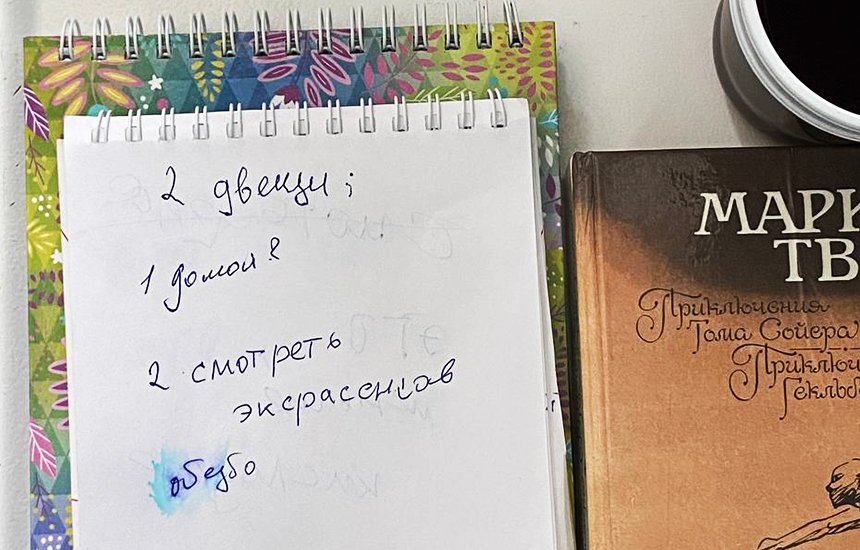 2 двещи;
1 домой?
2 смотреть
эксрасенсов
обезбо
МАРК
ТВ
Приключения
Тома Сойера
Приключ
Гекльбе